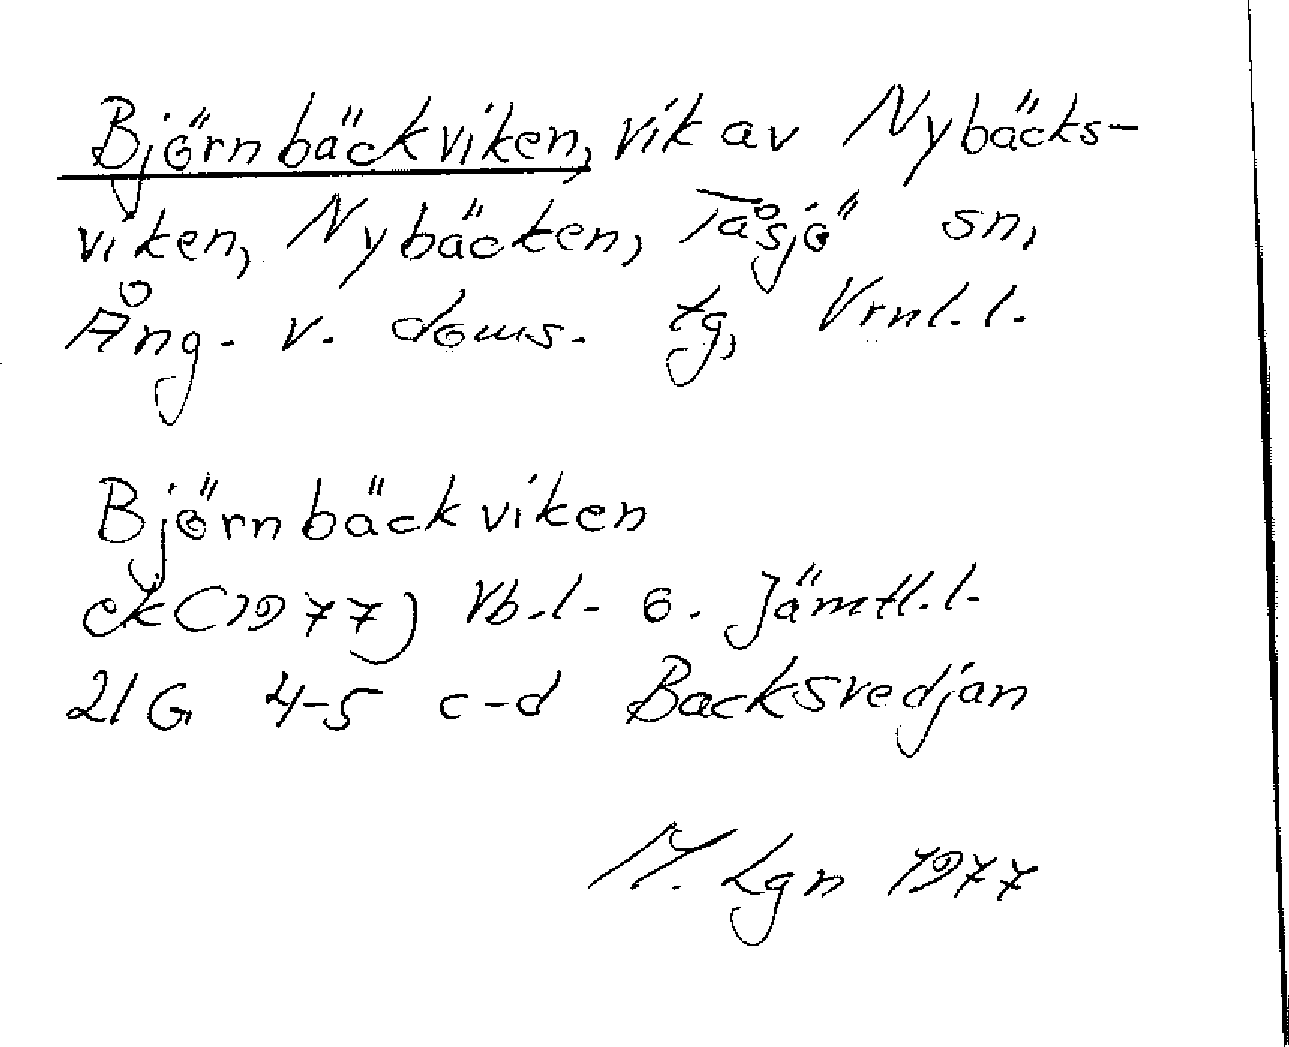 Björnbäckviken, vik av Nybäcks-
viken, Nybäcken, Tåsjö sn,
Ång. v. doms. tg, Vrnl.l.
Björnbäckviken
ek (1977) Vb.l. o. Jämtl.l.
21G 4-5 c-d Backsvedjan
M. Lgn 1977